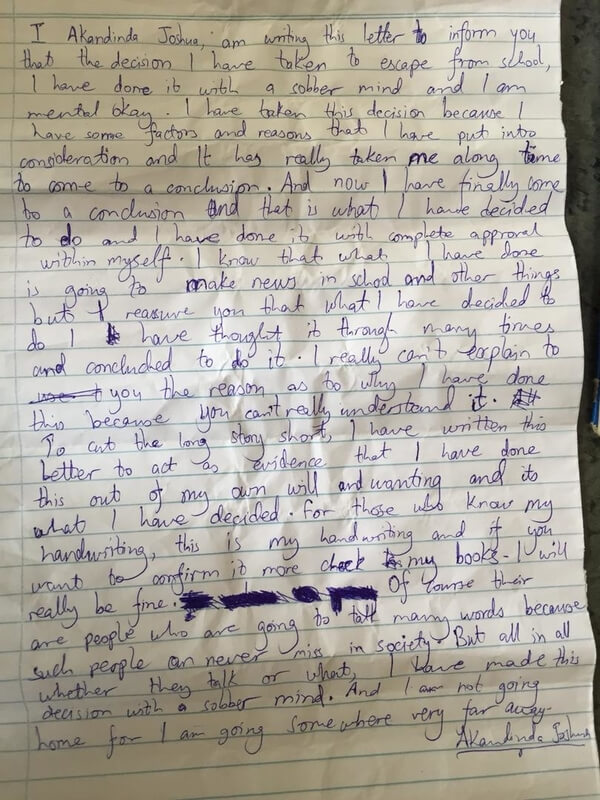 I Akandinda Joshua, am writing this letter to inform you
that the decision I have taken to escape from school,
I have done it with a sobber mind and I am
mental okay. I have taken this decision because I
have some factors and reasons that I have put into
consideration and It has really taken me along time
to come to a conclusion. And now I have finally come
to a conclusion And that is what I have decided
to do and I have done it with complete approval
within myself. I know that what I have done
is going to make news in school and other things
but I reasure you that what I have decided to
do I have thought it through many times
and conclucked to do it. I really can't explain to
you the reason as to why I have done
this because you can't really understand it.
To cut the long story short, I have written this
letter to act as evidence that I have done
this out of my own will and wanting and its
what I have decided. for those who know my
handwriting, this is my handwriting and if you
want to confirm it more check my books. I will
really be fine. Of course their
are people who are going to talk many words because
such people can never miss in society. But all in all
whether they talk or what, I have made this
decision with a sobber mind. And I am not going
home for I am going somewhere very far away.
Akandinda Joshua